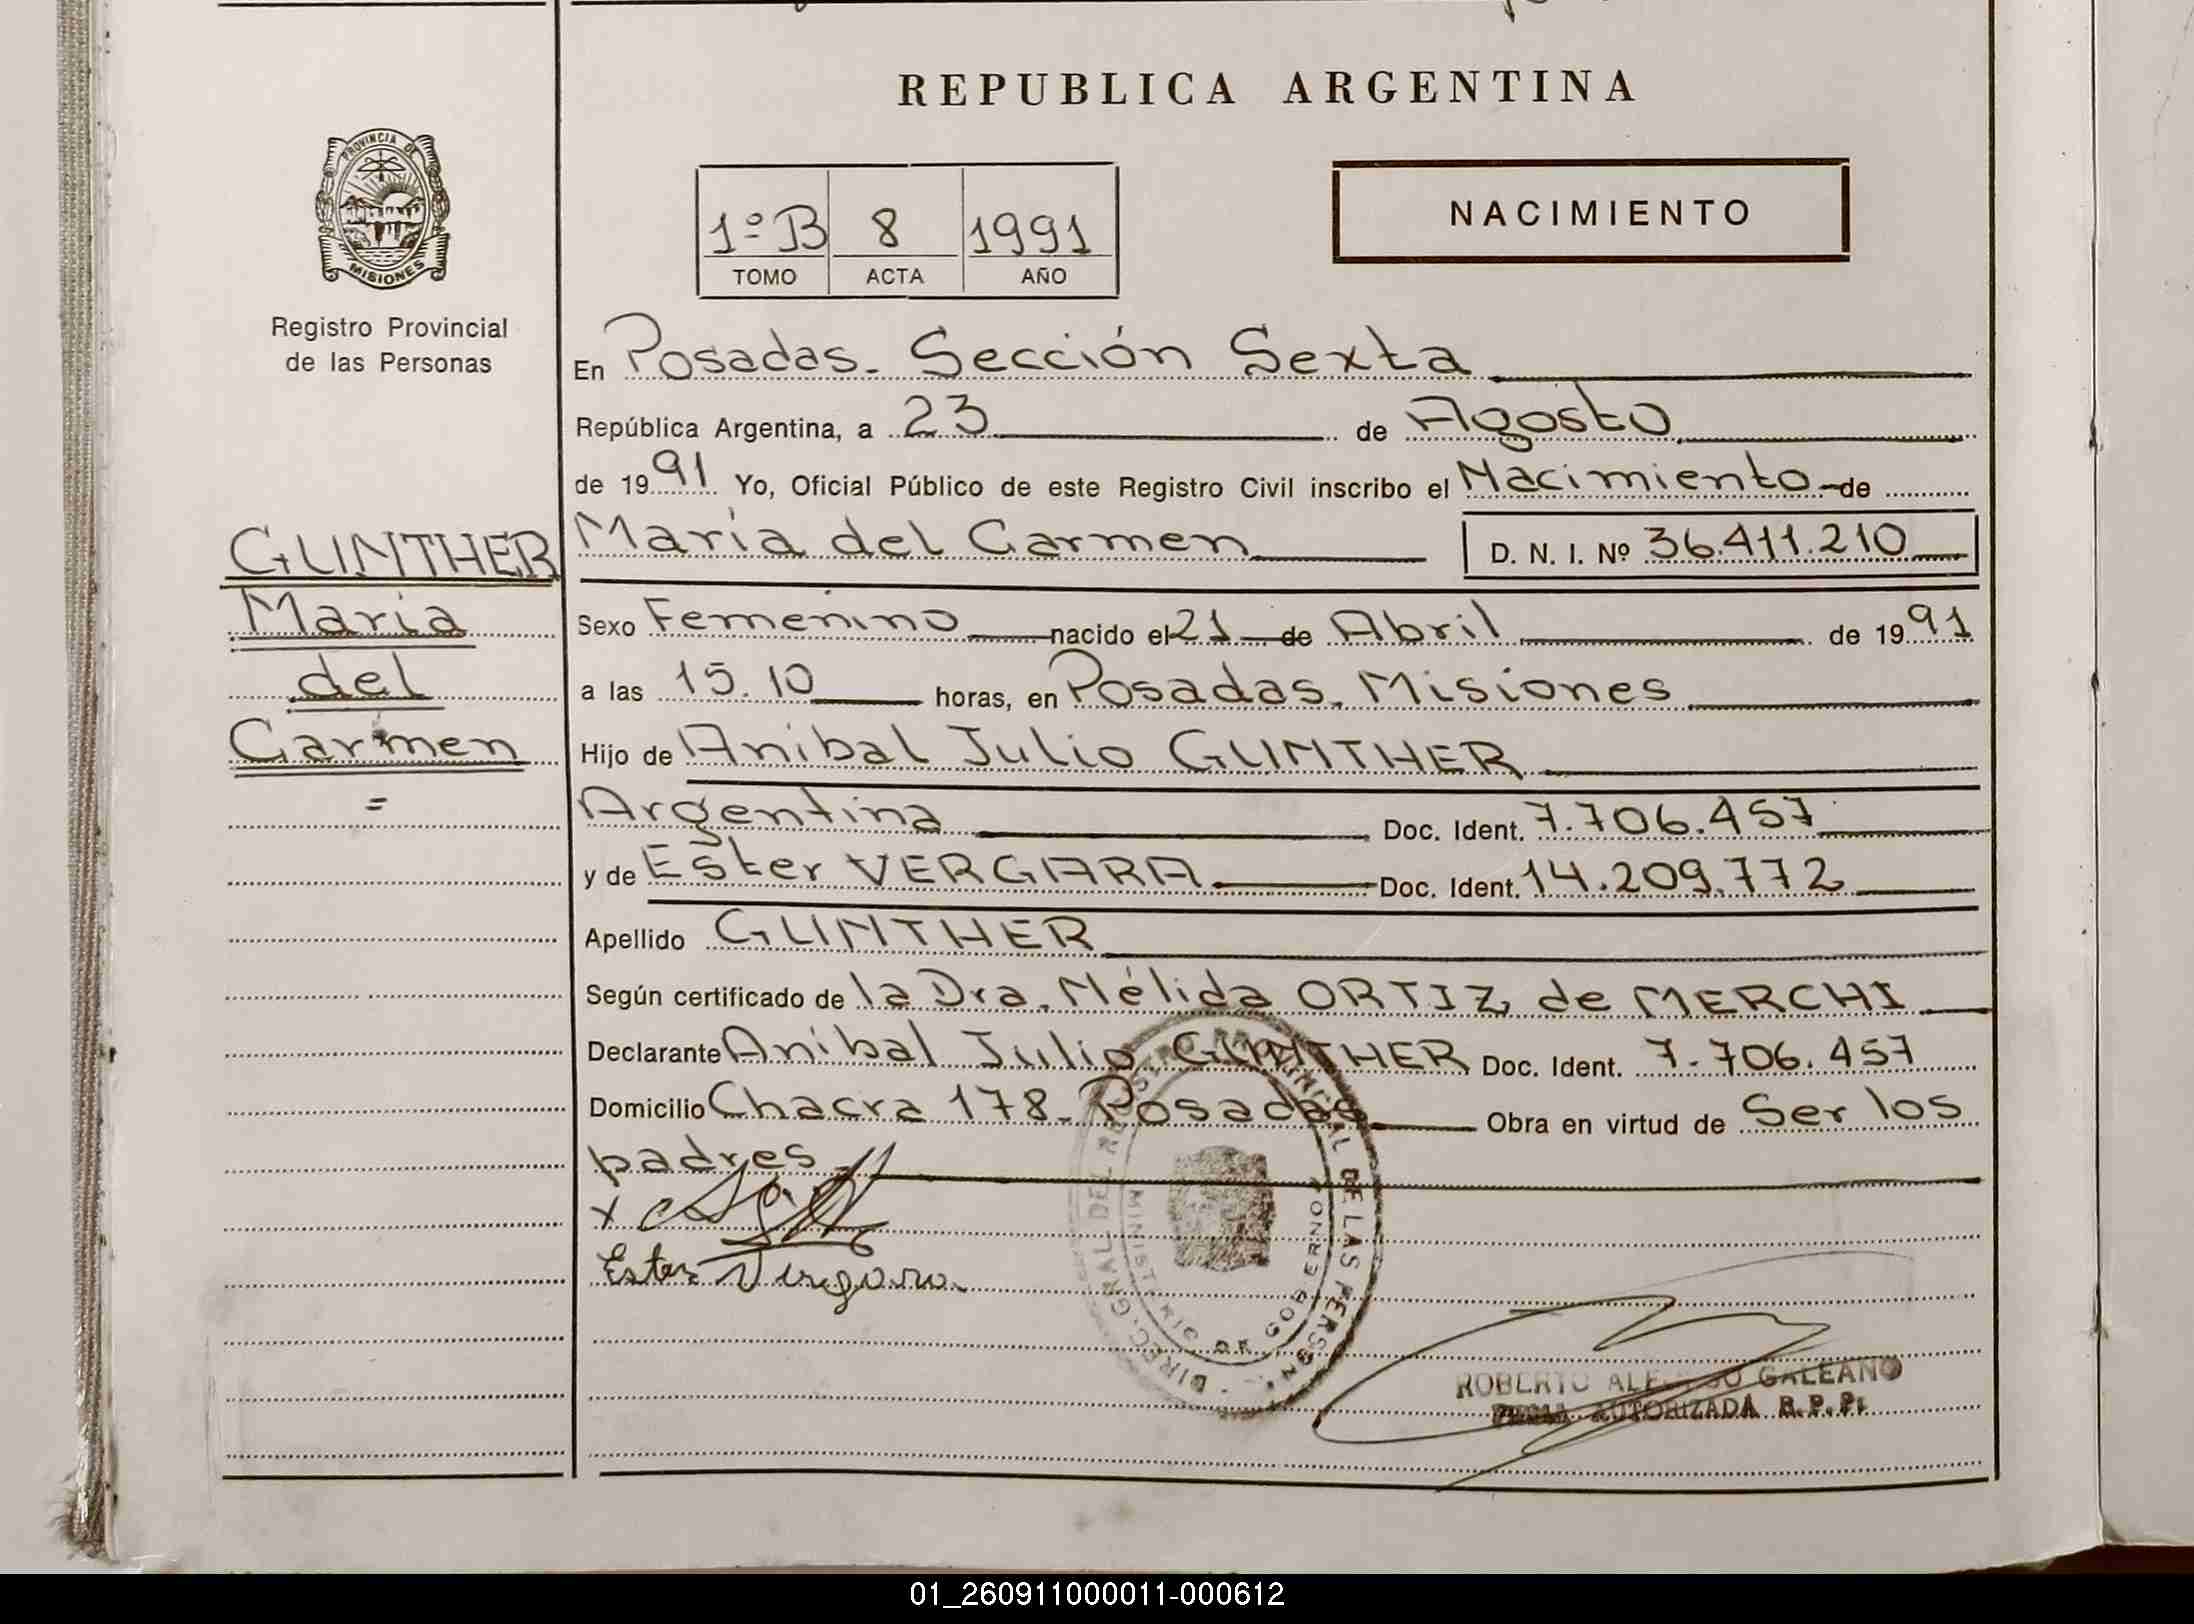 REPUBLICA ARGENTINA
PROVINCIA DE
MISIONES
Registro Provincial
de las Personas
1º B 8 1991
TOMO ACTA AÑO
NACIMIENTO
En Posadas. Sección Sexta
República Argentina, a 23 de Agosto
de 1991 Yo, Oficial Público de este Registro Civil inscribo el Nacimiento de
GUNTHER
María
del
Carmen
=
María del Carmen D. N. I. Nº 36.411.210
Sexo Femenino nacido el 21 de Abril de 1991
a las 15.10 horas, en Posadas, Misiones
Hijo de Anibal Julio GUNTHER
Argentina Doc. Ident. 7.706.457
y de Ester VERGARA Doc. Ident. 14.209.772
Apellido GUNTHER
Según certificado de la Dra. Nélida ORTIZ de MERCHI
Declarante Anibal Julio GUNTHER Doc. Ident. 7.706.457
Domicilio Chacra 178. Posadas Obra en virtud de Ser los
padres
x
Ester Vergara
DIREC. GRAL DEL REGISTRO PROVINCIAL DE LAS PERSONAS
MINISTERIO DE GOBIERNO
ROBERTO GALEANO
FIRMA AUTORIZADA R.P.P.
01_260911000011-000612